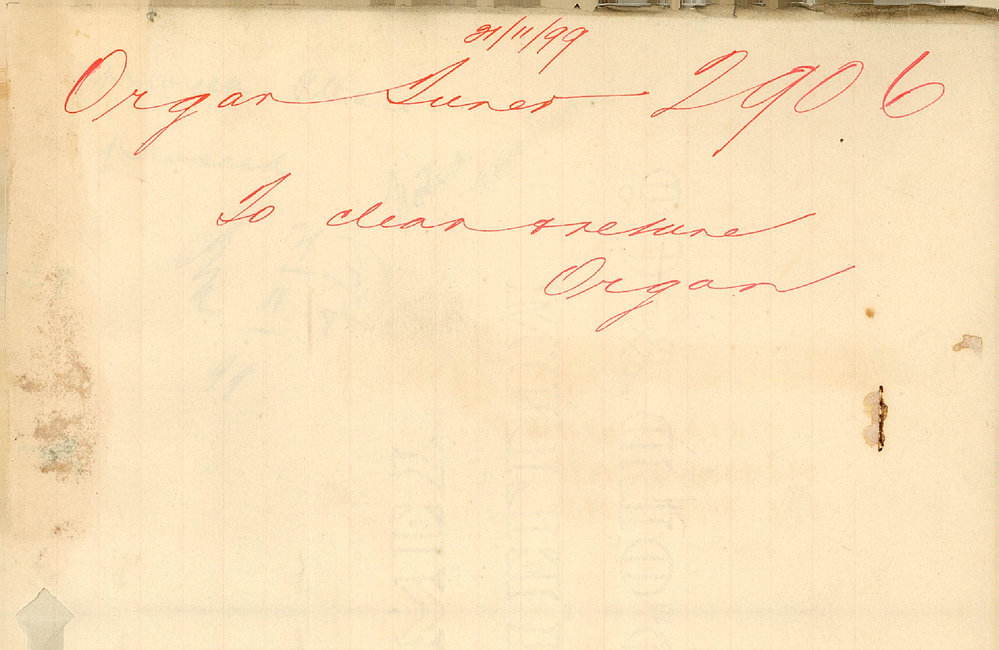 21/11/99
Organ Tuner 290 6
To clean & retune
Organ